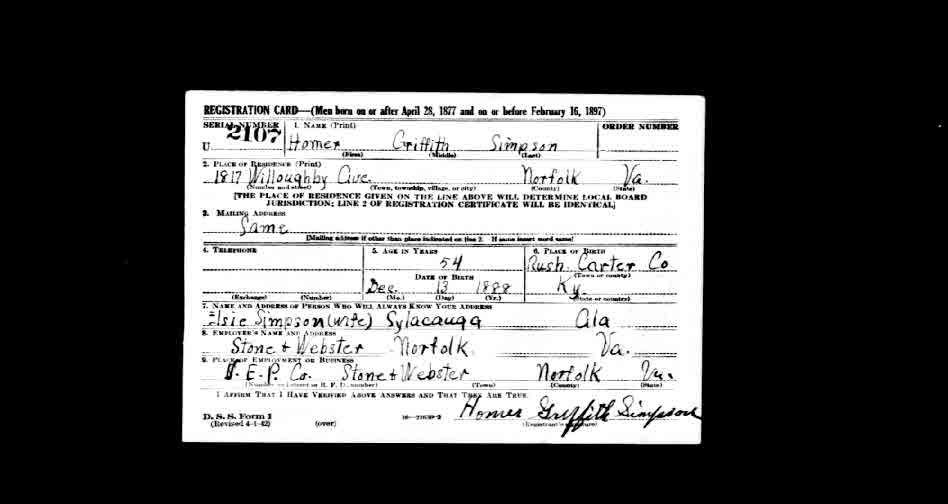 REGISTRATION CARD—(Men born on or after April 28, 1877 and on or before February 16, 1897)
SERIAL NUMBER 1. NAME (Print) ORDER NUMBER
U 2107 Homer Griffith Simpson
(First) (Middle) (Last)
2. PLACE OF RESIDENCE (Print)
1817 Willoughby Ave. Norfolk Va.
(Number and street) (Town, township, village, or city) (County) (State)
[THE PLACE OF RESIDENCE GIVEN ON THE LINE ABOVE WILL DETERMINE LOCAL BOARD
JURISDICTION; LINE 2 OF REGISTRATION CERTIFICATE WILL BE IDENTICAL]
3. MAILING ADDRESS
Same
[Mailing address if other than place indicated on line 2. If same insert word same]
4. TELEPHONE 5. AGE IN YEARS 6. PLACE OF BIRTH
54 Rush Carter Co
DATE OF BIRTH (Town or county)
Dec. 13 1888 Ky.
(Exchange) (Number) (Mo.) (Day) (Yr.) (State or country)
7. NAME AND ADDRESS OF PERSON WHO WILL ALWAYS KNOW YOUR ADDRESS
Elsie Simpson (wife) Sylacauga Ala
8. EMPLOYER'S NAME AND ADDRESS
Stone & Webster Norfolk Va.
9. PLACE OF EMPLOYMENT OR BUSINESS
E. P. Co. Stone & Webster Norfolk Va.
(Number and street or R. F. D. number) (Town) (County) (State)
I AFFIRM THAT I HAVE VERIFIED ABOVE ANSWERS AND THAT THEY ARE TRUE.
D. S. S. Form 1 Homer Griffith Simpson
(Revised 4-1-42) (over) (Registrant's signature)